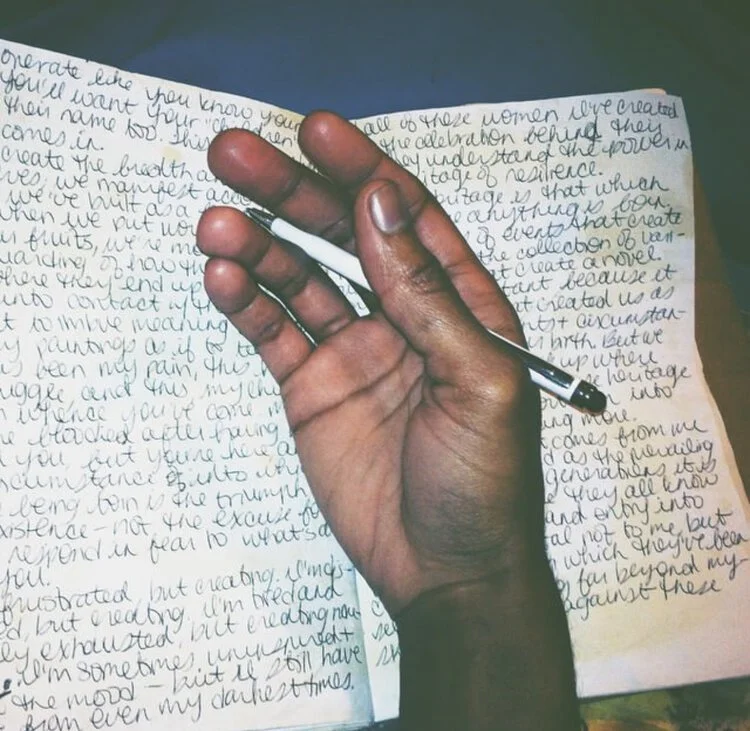 operate like you know your
you'll want your "children"
their name too. This
comes in.
create the breadth a
ves, we manifest
we've built as a
when we put wo
r fruits, we're m
uarding of how th
where they end up
into contact
t to imbue meaning
y paintings as if to
s been my pain, this
uggle, and this my ch
whence you've come
e bloodied after having
you, but you're here a
cumstance of into wh
being born is the triumph
xistence - not the excuse fo
respond in fear to what's
you.
frustrated, but creating. I'm
ed, but creating. I'm tired and
ly exhausted, but creating
I'm sometimes uninspired +
the mood - but I still have
from even my darkest times.
all of these women I've created
the celebration behind their
they understand the power in
tage of resilience.
ritage is that which
anything is born.
of events that create
the collection of var-
t create a novel.
tant because it
t created us as
nts + circumstan-
birth but we
up where
heritage
into
ing more.
comes from me
d as the prevailing
generations it is
they all know
and entry into
al not to me but
which they've been
far beyond my
against these